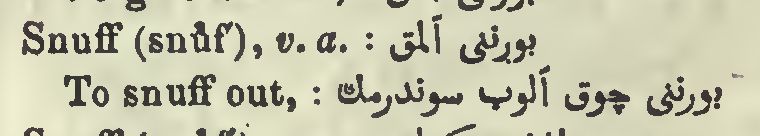 Snuff (snŭf), v. a. : بورننی آلمق
To snuff out, : بورننی چوق آلوب سوندرمك